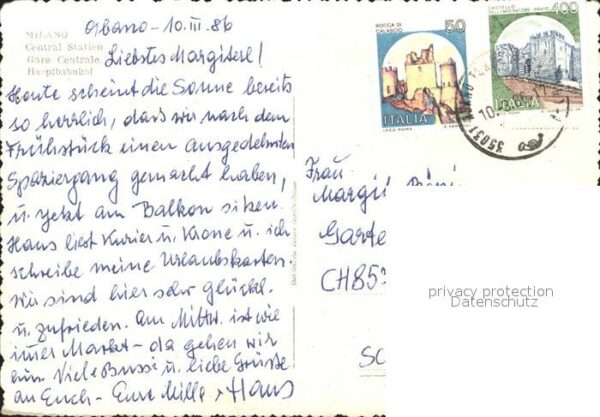 Abano - 10.III.86
MILANO
Central Station
Gare Centrale
Hauptbahnhof
Liebstes Margiterl!
Heute scheint die Sonne bereits
so herrlich, dass wir nach dem
Frühstück einen ausgedehnten
Spaziergang gemacht haben,
u. jetzt am Balkon sitzen.
Hans liest Kurier u. Krone u. ich
schreibe meine Urlaubskarten.
Wir sind hier sehr glückl.
u. zufrieden. Am Mittw. ist wie
immer Markt - da gehen wir
hin. Viele Bussi u. liebe Grüsse
an Euch - Eure Mille + Hans
ROCCA DI
CALASCIO
50
ITALIA
CASTELLO
DELL'IMPERATORE - PRATO
400
ITALIA
35031 ABANO
10
Frau
Margit
Garte
CH85
SC
privacy protection
Datenschutz